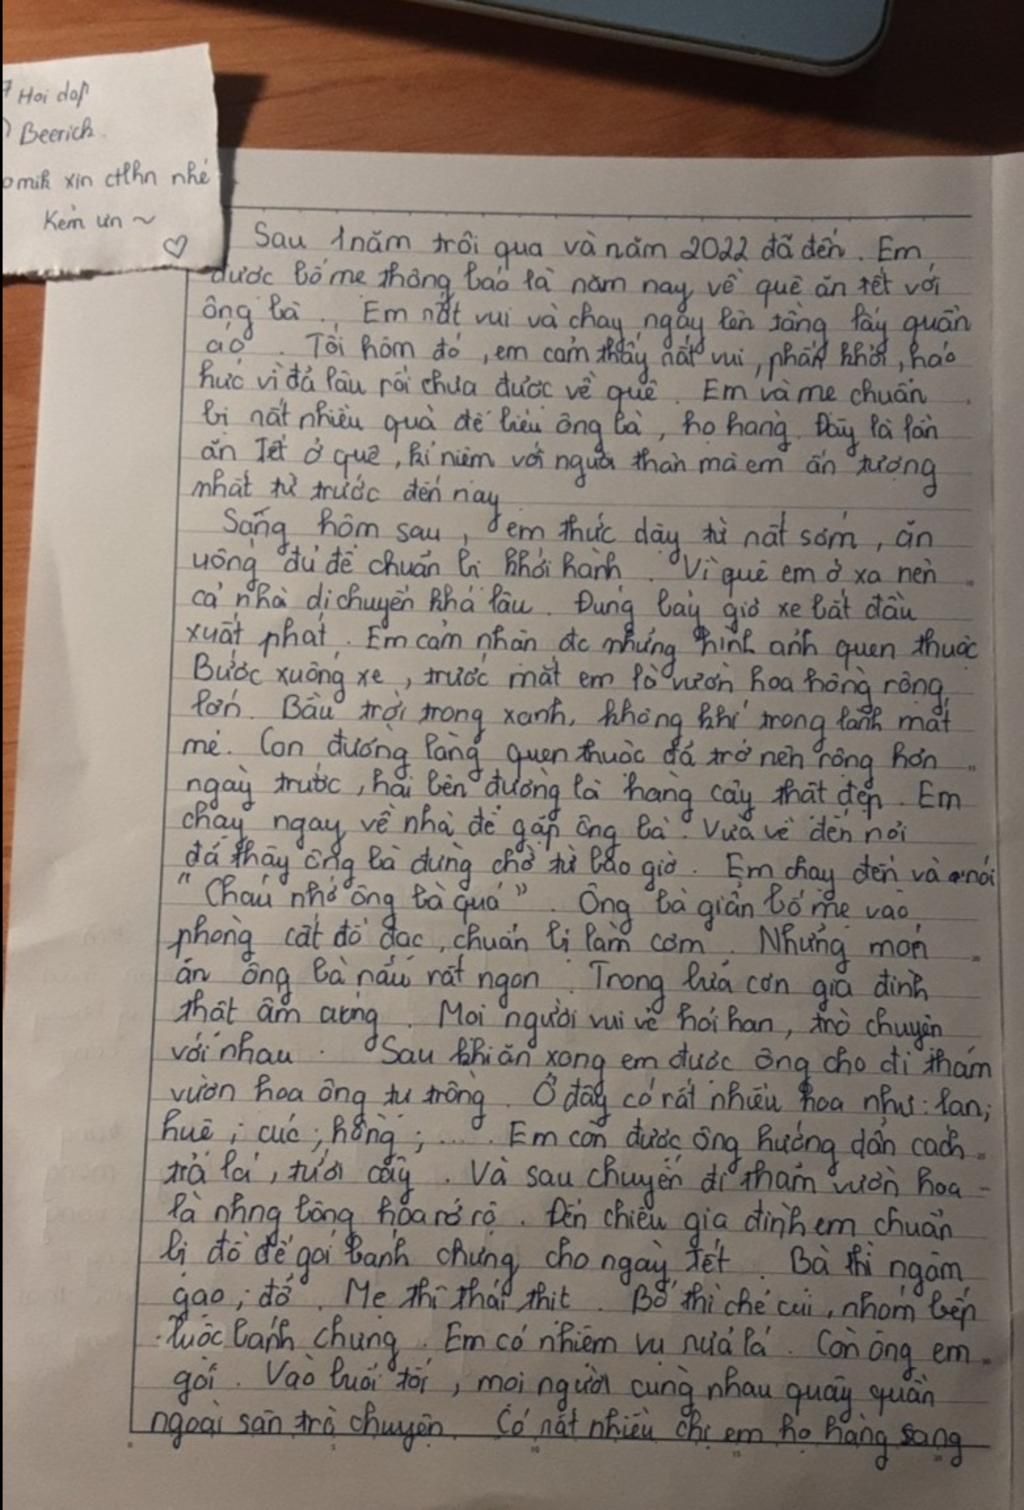 Hoi dap
Beerich.
mik xin ctlhn nhé
Kém ưn ~
Sau 1 năm trôi qua và năm 2022 đã đến. Em
được bố mẹ thông báo là năm nay về quê ăn tết với
ông bà. Em nất vui và chạy ngay lên tầng lấy quần
áo. Tối hôm đó, em cảm thấy nất vui, phấn khởi, háo
hức vì đã lâu rồi chưa được về quê. Em và mẹ chuẩn
bị nất nhiều quà để biếu ông bà, họ hàng. Đây là lần
ăn Tết ở quê, kỉ niệm với người thân mà em ấn tượng
nhất từ trước đến nay
Sáng hôm sau, em thức dậy từ nất sớm, ăn
uống đủ để chuẩn bị khởi hành. Vì quê em ở xa nên
cả nhà di chuyển khá lâu. Đúng bảy giờ xe bắt đầu
xuất phát. Em cảm nhận đc những hình ảnh quen thuộc
Bước xuống xe, trước mắt em là vườn hoa hồng rộng
lớn. Bầu trời trong xanh, không khí trong lành mát
mẻ. Con đường làng quen thuộc đã trở nên rộng hơn
ngày trước, hai bên đường là hàng cây thật đẹp. Em
chạy ngay về nhà để gặp ông bà. Vừa về đến nơi
đã thấy ông bà đứng chờ từ bao giờ. Em chạy đến và nói
"Cháu nhớ ông bà quá". Ông bà giản bố mẹ vào
phòng cất đồ đạc, chuẩn bị làm cơm. Những món
ăn ông bà nấu rất ngon. Trong bữa cơn gia đình
thật ấm cúng. Mọi người vui vẻ hỏi han, trò chuyện
với nhau. Sau khi ăn xong em được ông cho đi thăm
vườn hoa ông tự trồng. Ở đây có rất nhiều hoa như: lan;
huệ; cúc; hồng; .... Em còn được ông hướng dẫn cách
trả lá, tưới cây. Và sau chuyến đi thăm vườn hoa
là nhng bông hoa rớ rộ. Đến chiều gia đình em chuẩn
bị đồ để gói bánh chưng cho ngày Tết. Bà thì ngâm
gạo; đỗ. Mẹ thì thái thịt. Bố thì chẻ củi, nhóm bếp
luộc bánh chưng. Em có nhiệm vụ nửa lá. Còn ông em
gói. Vào buổi tối, mọi người cùng nhau quây quần
ngoài sân trò chuyện. Có nất nhiều chị em họ hàng sang